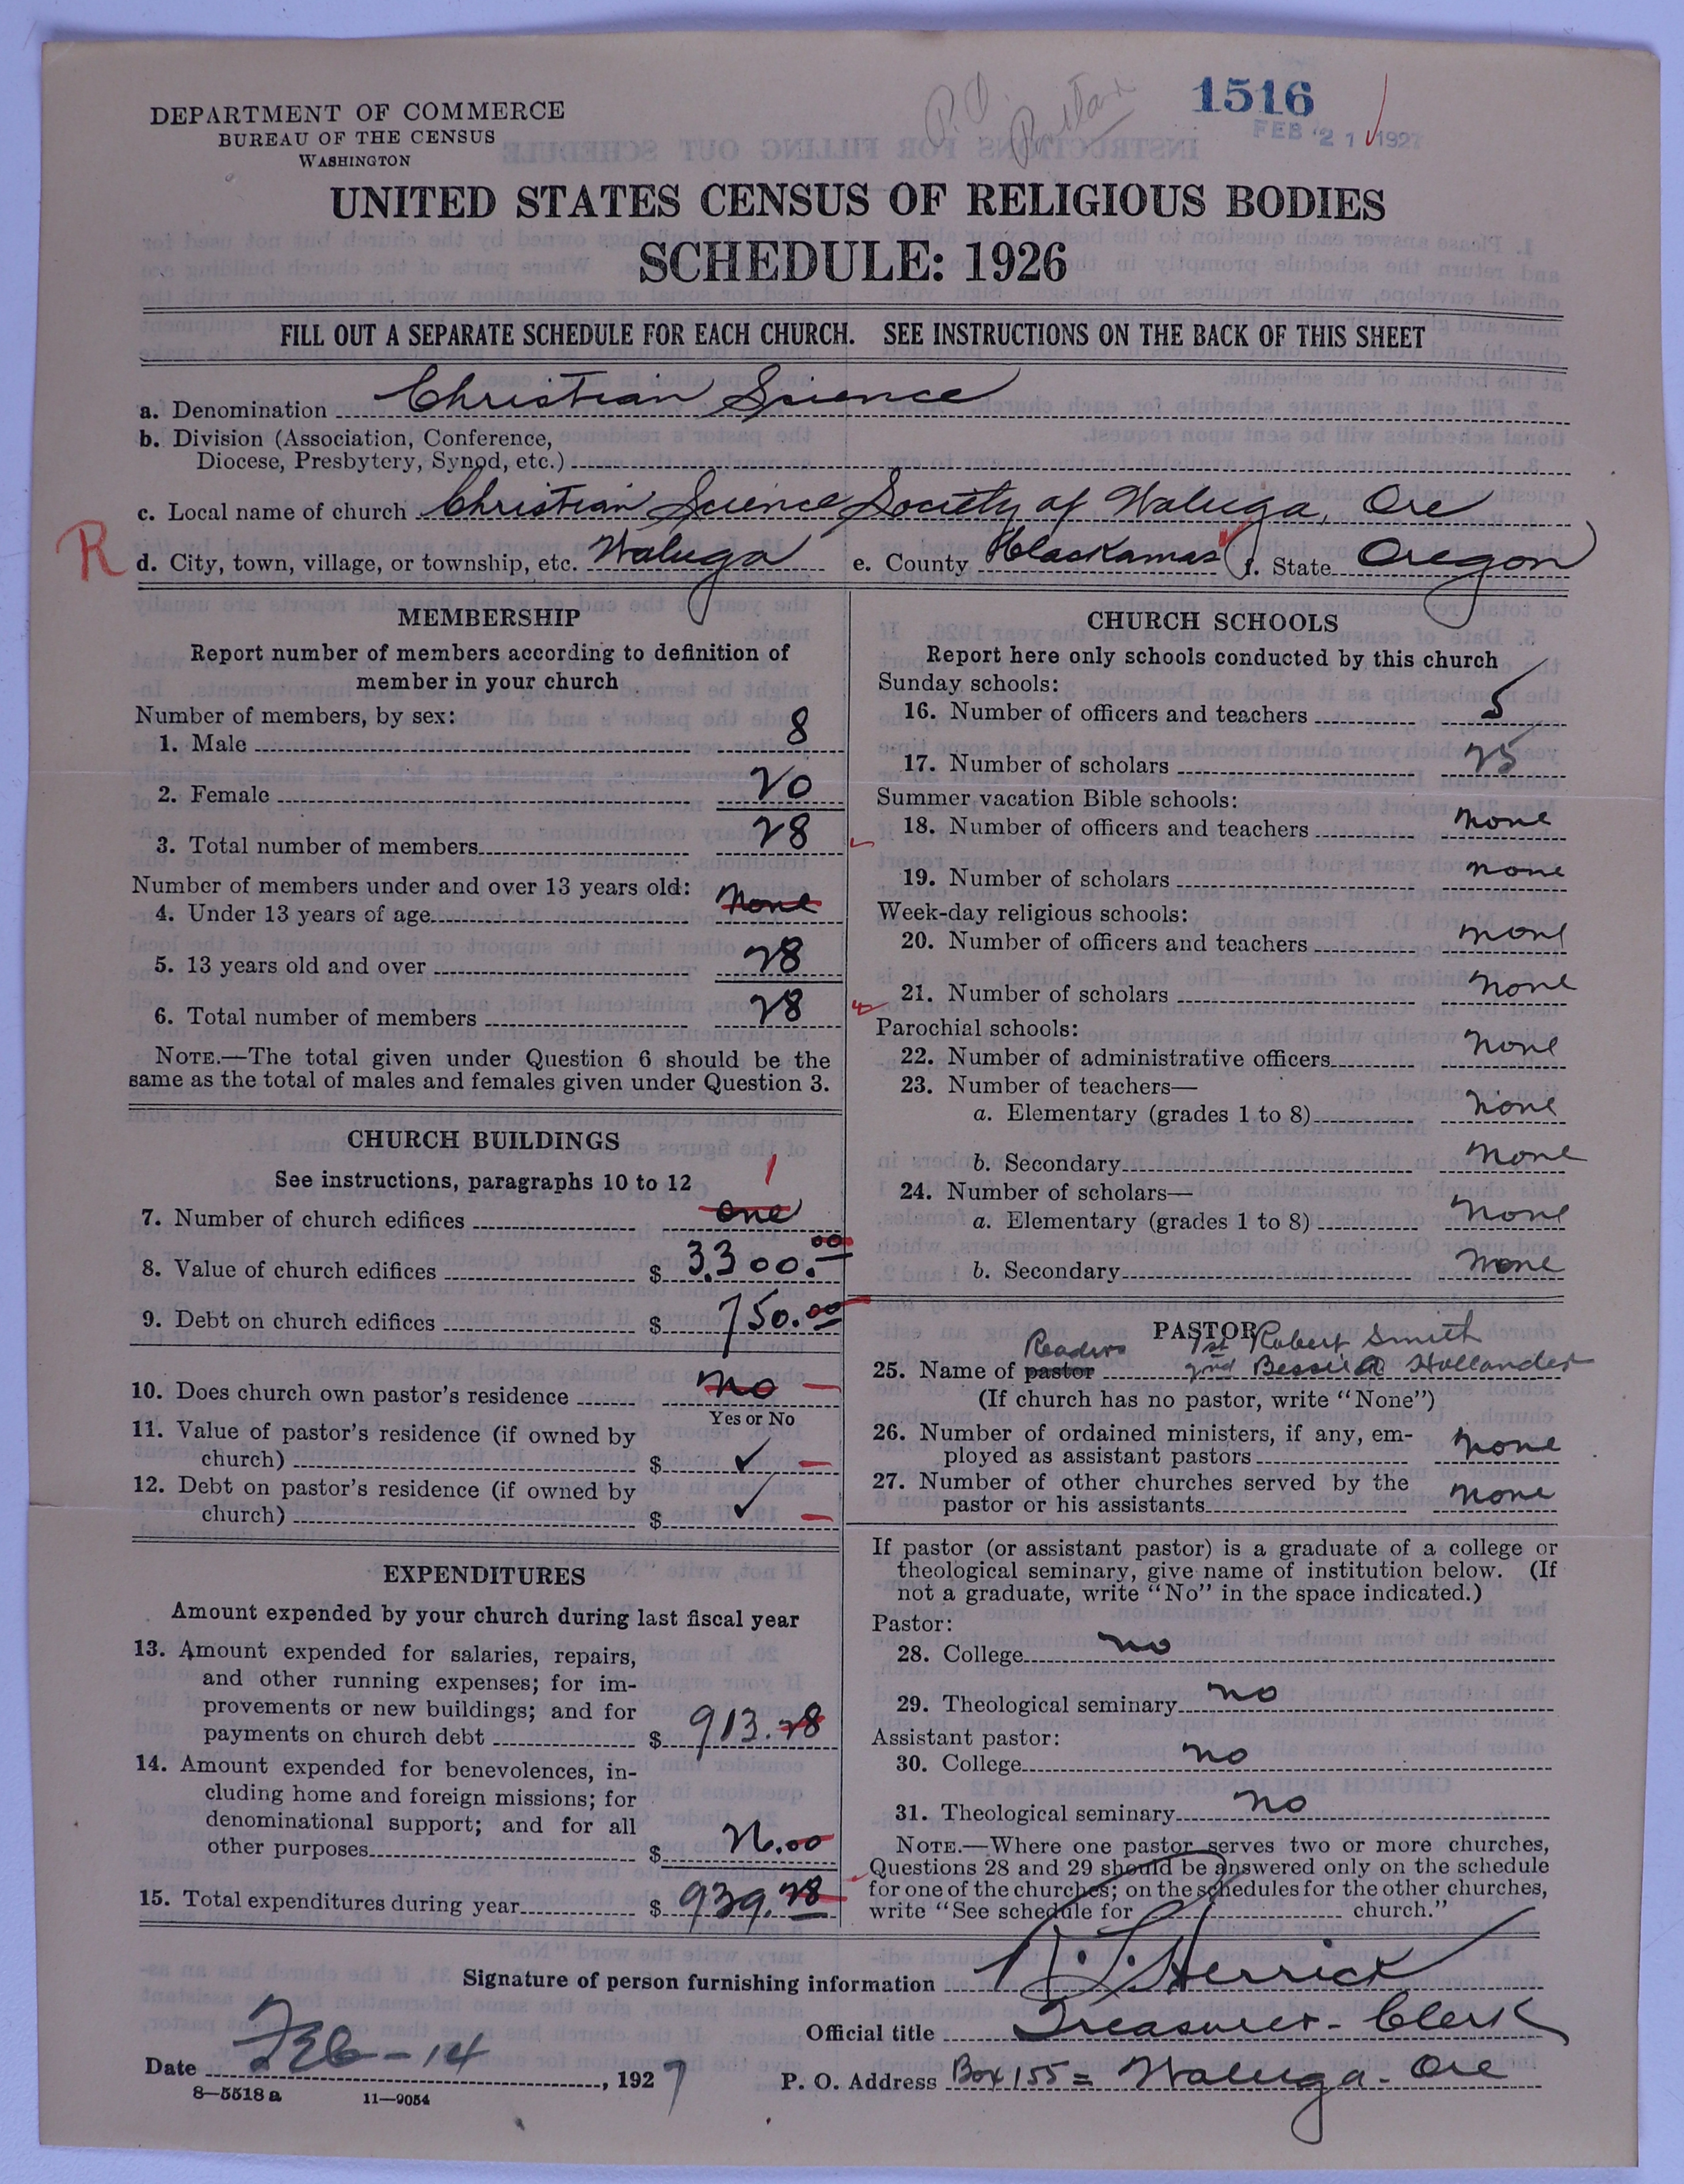 P.O.
1516
FEB 21 1927
DEPARTMENT OF COMMERCE
BUREAU OF THE CENSUS
WASHINGTON
UNITED STATES CENSUS OF RELIGIOUS BODIES
SCHEDULE: 1926
FILL OUT A SEPARATE SCHEDULE FOR EACH CHURCH. SEE INSTRUCTIONS ON THE BACK OF THIS SHEET
a. Denomination Christian Science
b. Division (Association, Conference,
Diocese, Presbytery, Synod, etc.)
c. Local name of church Christian Science Society of Waluga, Ore
R d. City, town, village, or township, etc. Waluga e. County Clackamas f. State Oregon
MEMBERSHIP
Report number of members according to definition of
member in your church
Number of members, by sex:
1. Male 8
2. Female 20
3. Total number of members 28
Number of members under and over 13 years old:
4. Under 13 years of age None
5. 13 years old and over 28
6. Total number of members 28
NOTE.—The total given under Question 6 should be the
same as the total of males and females given under Question 3.
CHURCH BUILDINGS
See instructions, paragraphs 10 to 12
1
7. Number of church edifices one
8. Value of church edifices $ 3,300.00
9. Debt on church edifices $ 750.00
10. Does church own pastor's residence no
Yes or No
11. Value of pastor's residence (if owned by
church) $ ✓ —
12. Debt on pastor's residence (if owned by
church) $ ✓ —
EXPENDITURES
Amount expended by your church during last fiscal year
13. Amount expended for salaries, repairs,
and other running expenses; for im-
provements or new buildings; and for
payments on church debt $ 913.28
14. Amount expended for benevolences, in-
cluding home and foreign missions; for
denominational support; and for all
other purposes $ 26.00
15. Total expenditures during year $ 939.28
CHURCH SCHOOLS
Report here only schools conducted by this church
Sunday schools:
16. Number of officers and teachers 5
17. Number of scholars 25
Summer vacation Bible schools:
18. Number of officers and teachers none
19. Number of scholars none
Week-day religious schools:
20. Number of officers and teachers none
21. Number of scholars none
Parochial schools:
22. Number of administrative officers none
23. Number of teachers—
a. Elementary (grades 1 to 8) none
b. Secondary none
24. Number of scholars—
a. Elementary (grades 1 to 8) none
b. Secondary none
PASTOR
Readers 1st Robert Smith
25. Name of pastor 2nd Bessie A Hollander
(If church has no pastor, write "None")
26. Number of ordained ministers, if any, em-
ployed as assistant pastors none
27. Number of other churches served by the
pastor or his assistants none
If pastor (or assistant pastor) is a graduate of a college or
theological seminary, give name of institution below. (If
not a graduate, write "No" in the space indicated.)
Pastor:
28. College no
29. Theological seminary no
Assistant pastor:
30. College no
31. Theological seminary no
NOTE.—Where one pastor serves two or more churches,
Questions 28 and 29 should be answered only on the schedule
for one of the churches; on the schedules for the other churches,
write "See schedule for church."
Signature of person furnishing information Herrick
Official title Treasurer - Clerk
Date Feb - 14, 1927 P. O. Address Box 155 = Waluga - Ore
8—5518 a 11—9054